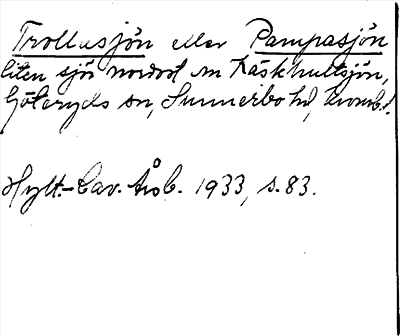 Trollasjön eller Pampasjön
liten sjö nordost om Käskhultsjön,
Göteryds sn, Sunnerbo hd, Kronob.l.
Hylt.-Cav. Årsb. 1933, s. 83.